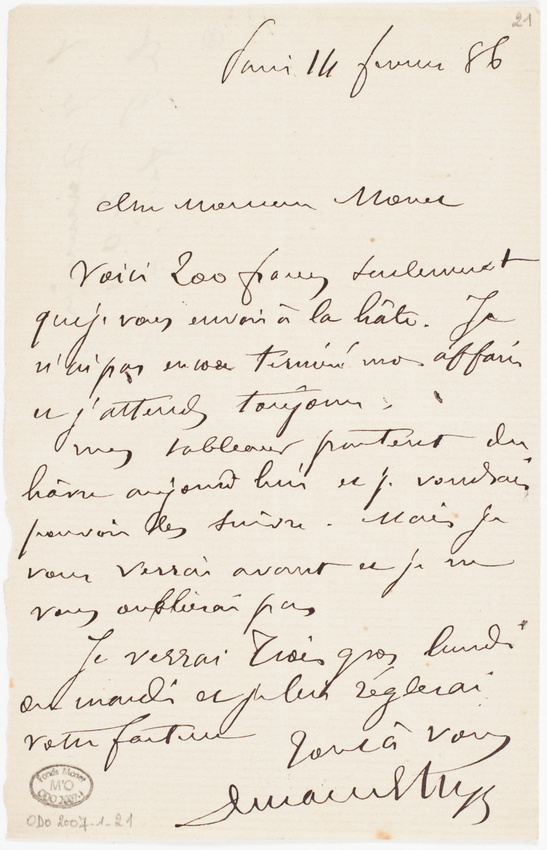 21
Paris 14 fevrier 86
cher Monsieur Monet
Voici 200 francs seulement
que je vous envoi à la hâte. Je
n'ai pas encore terminé mes affaires
et j'attends toujours.
mes tableaux partent du
hâvre aujourd'hui et je voudrais
pouvoir les suivre. Mais je
vous verrai avant et je ne
vous oublierai pas
Je verrai Troisgros lundi
ou mardi et je lui réglerai
votre facture
Tout à vous
Durand Ruel
Fonds Monet
M'O
ODO 2007-1
ODO 2007-1-21